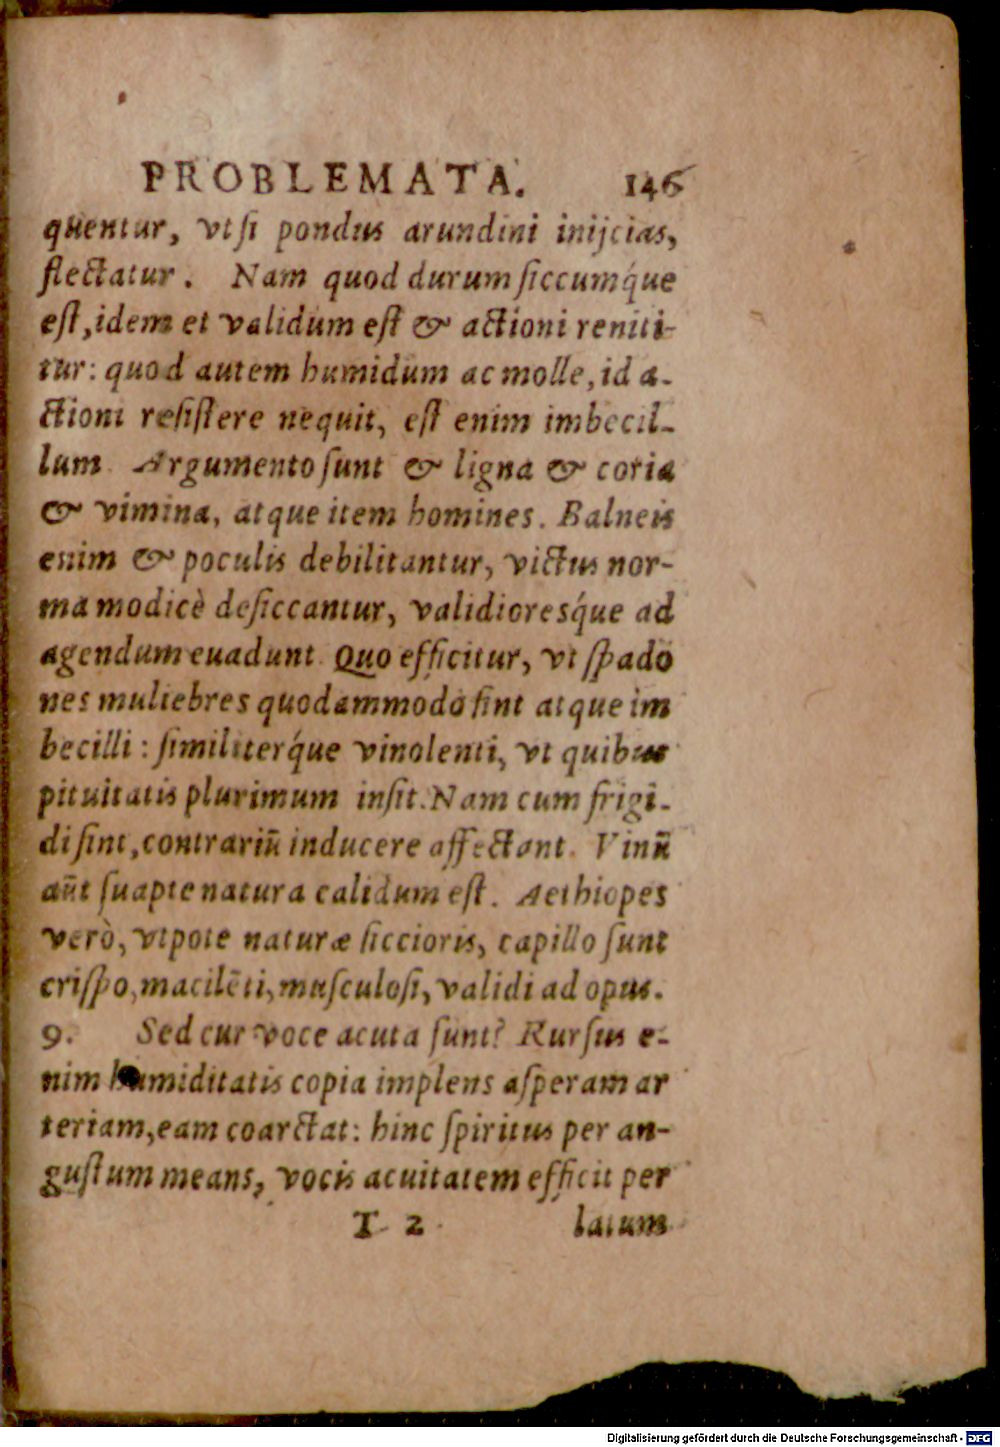 PROBLEMATA. 146
quentur, vt si pondus arundini inijcias,
flectatur. Nam quod durum siccumq́ue
est, idem et validum est & actioni reniti-
tur: quod autem humidum ac molle, id a-
ctioni resistere nequit, est enim imbecil-
lum. Argumento sunt & ligna & coria
& vimina, atque item homines. Balneis
enim & poculis debilitantur, victus nor-
ma modicè desiccantur, validioresq́ue ad
agendum euadunt. Quo efficitur, vt spado
nes muliebres quodammodo sint atque im
becilli: similiterq́ue vinolenti, vt quibus
pituitatis plurimum insit. Nam cum frigi-
di sint, contrariū inducere affectant. Vinū
aūt suapte natura calidum est. Aethiopes
verò, vtpote naturæ siccioris, capillo sunt
crispo, macilēti, musculosi, validi ad opus.
9. Sed cur voce acuta sunt? Rursus e-
nim humiditatis copia implens asperam ar
teriam, eam coarctat: hinc spiritus per an-
gustum means, vocis acuitatem efficit per
T 2 latum
Digitalisierung gefördert durch die Deutsche Forschungsgemeinschaft - DFG